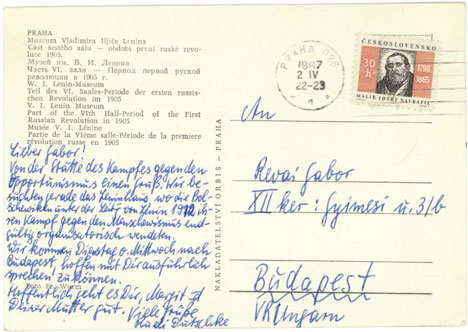 PRAHA
Muzeum Vladimíra Iljiče Lenina
Část šestého sálu – období první ruské revo-
luce 1905.
Музей им. В. И. Ленина
Часть VI. зала – Период первой русской
революции в 1905 г.
W. I. Lenin-Museum
Teil des VI. Saales-Periode der ersten russis-
chen Revolution im 1905
V. I. Lenin Museum
Part of the VIth Hall-Period of the First
Russian Revolution in 1905
Musée V. I. Lénine
Partie de la VIème salle-Période de la premiere
révolution russe en 1905
Lieber Gabor!
Von der Stätte des Kampfes gegen den
Opportunismus einen Gruß. Wir be-
suchten gerade das Leninhaus, wo die Bol-
schewiken unter der Leitg von Lenin 1912 ih-
ren Kampf gegen den Menschewismus end-
gültig organisatorisch
Wir kommen Dienstag o. Mittwoch nach
Budapest, hoffen mit Dir ausführlich
sprechen zu können.
Hoffentlich geht es Dir, Margit u
Deiner Mutter gut. Viele Grüße
Rudi
Foto Er. Worm
NAKLADATELSTVÍ ORBIS – PRAHA
PRAHA 025
1967
2 IV
22-23
1
ČESKOSLOVENSKO
30 h
1798
1865
MALÍŘ JOSEF NAVRÁTIL
An
Revai Gabor
XII ker: Gyimesi u. 3/b
Budapest
VR Ungarn